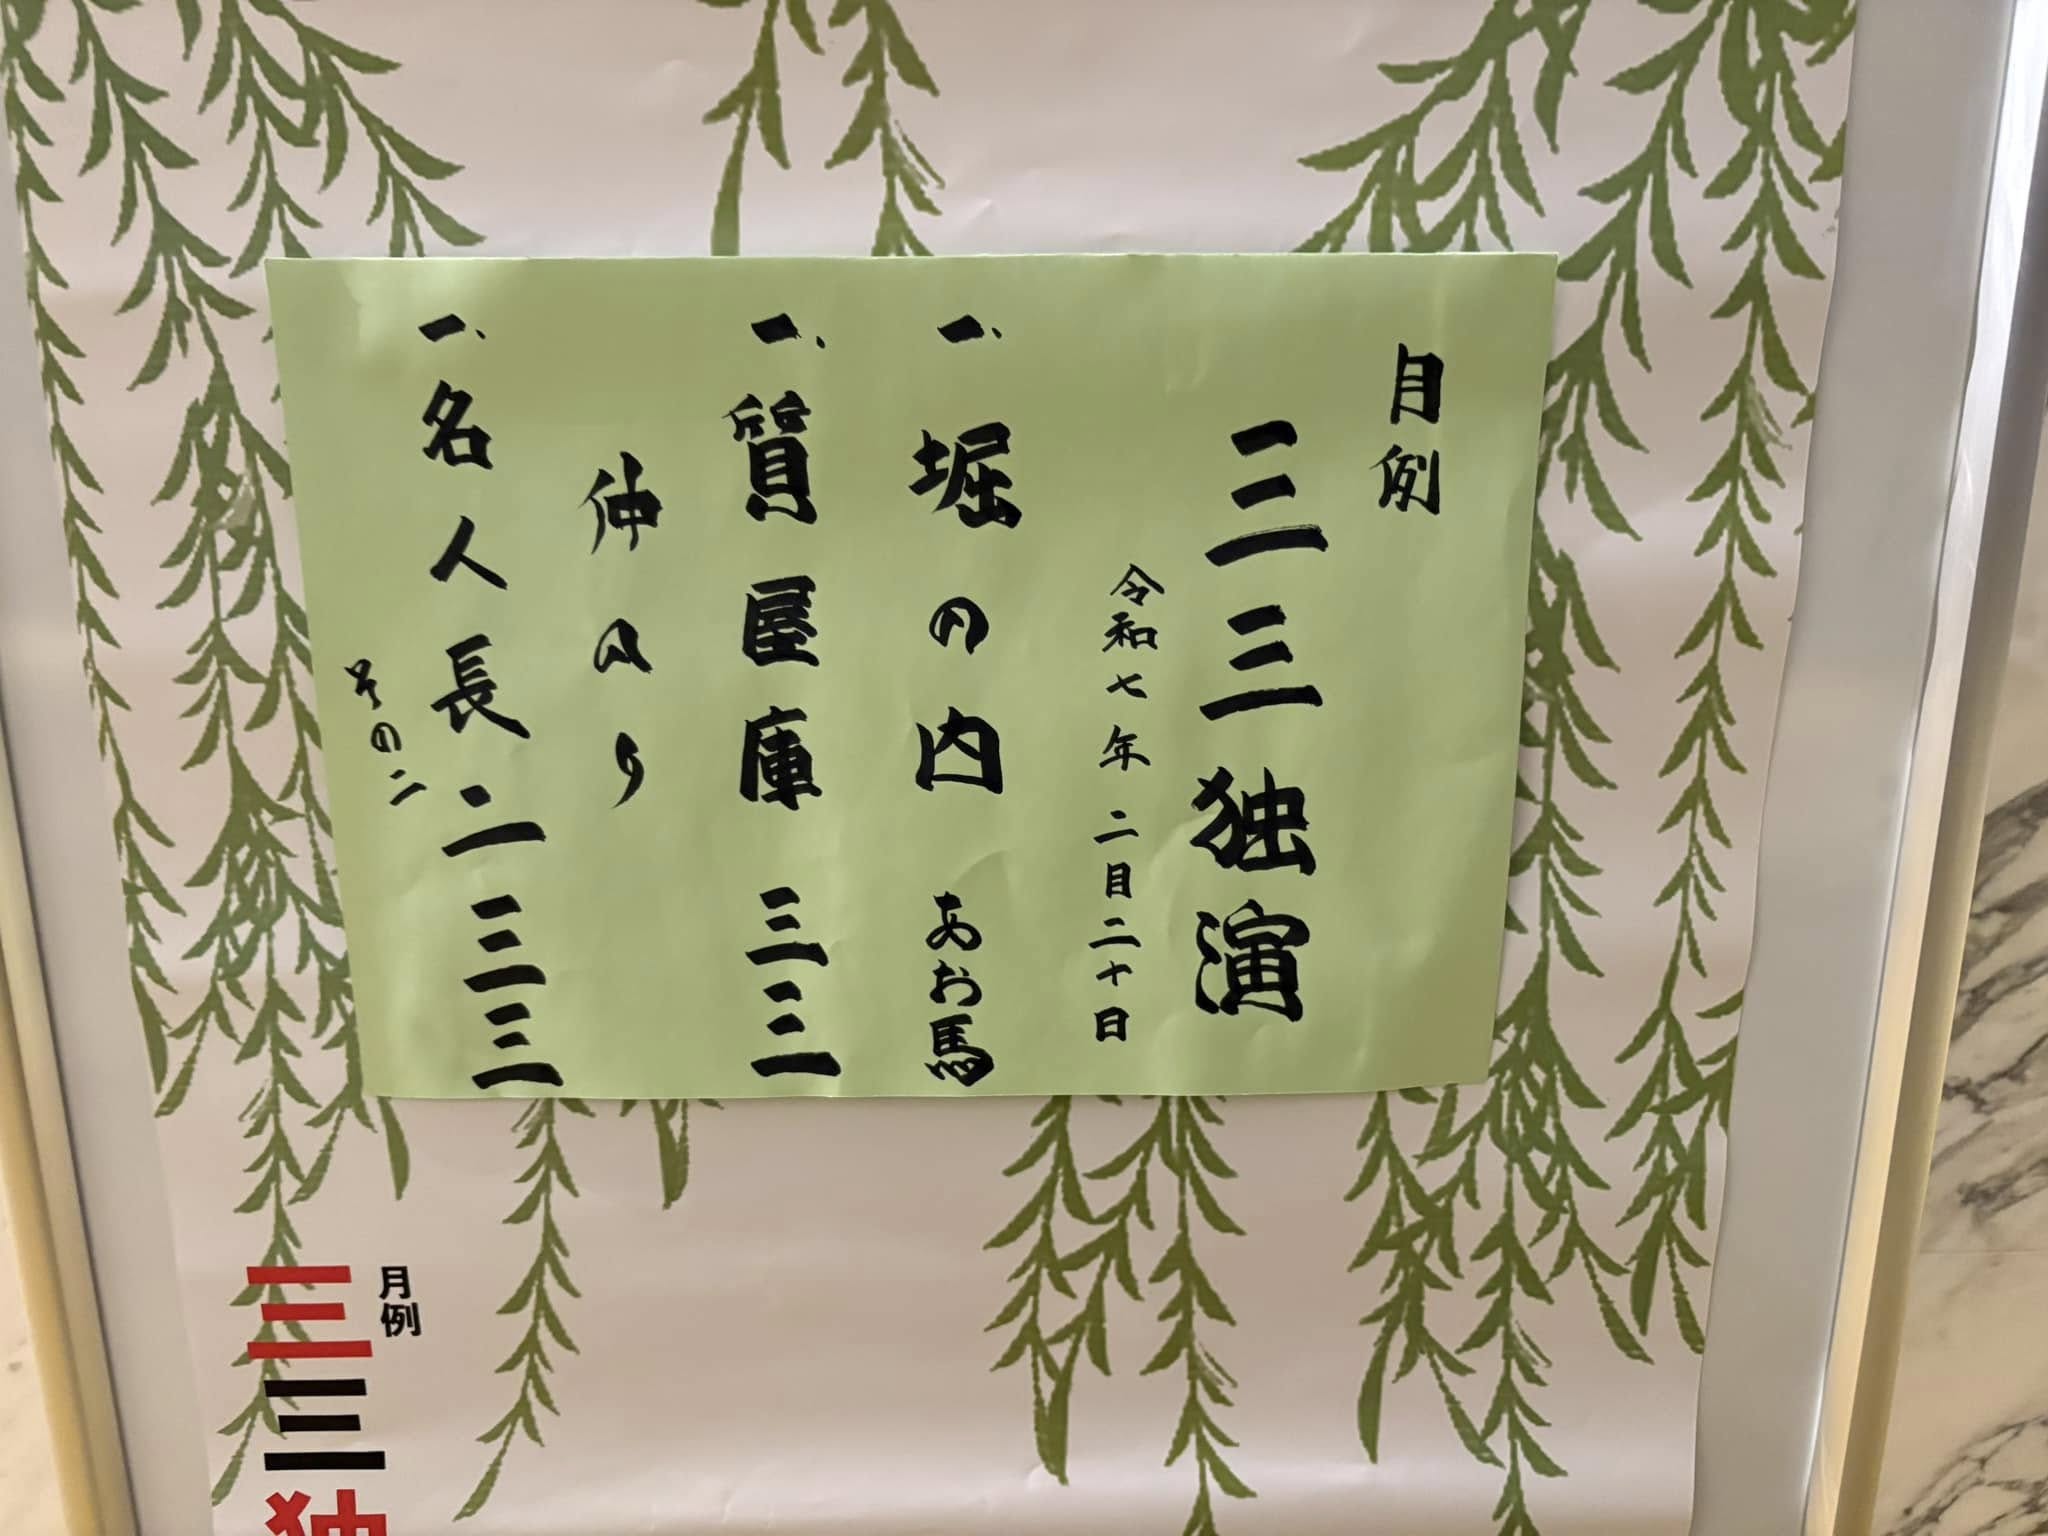 月例
三三独演
令和七年 二月二十日
一、堀の内 あお馬
一、質屋庫 三三
仲入り
一、名人長二 三三
その二
月例
三三独